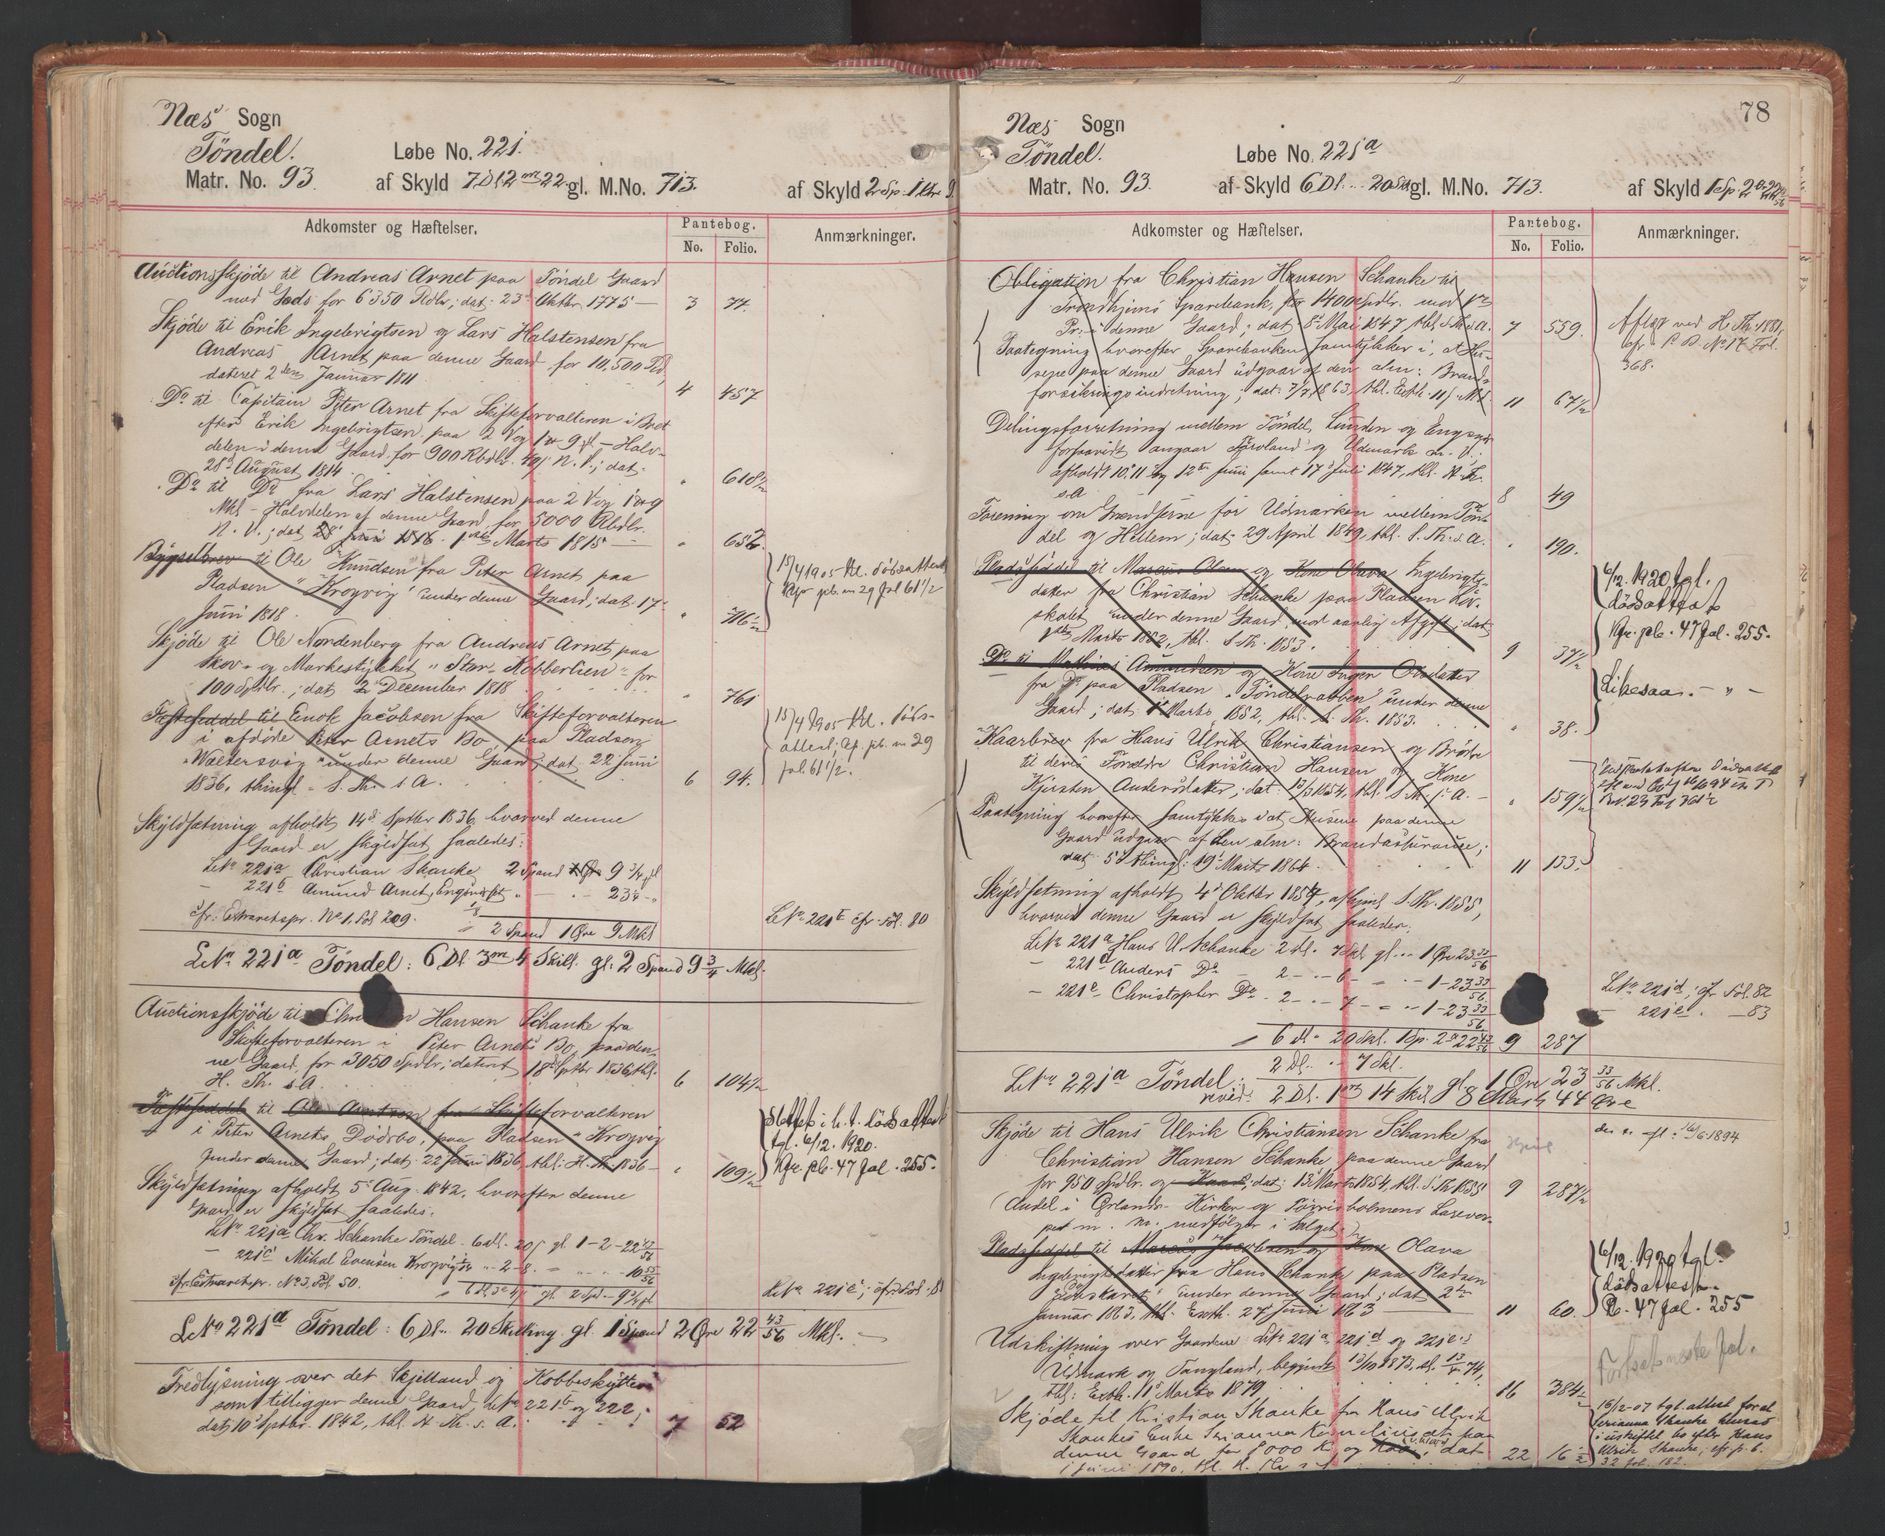 Næs Sogn
Töndel.
Løbe No. 221.
Matr. No. 93. af Skyld 7 Dl 2 m 22 gl. M.No. 713. af Skyld 2 Sp. 1 Øre 9
Adkomster og Hæftelser.
Pantebog.
No. Folio.
Anmærkninger.
Auctionsskjøde til Andreas Arnet paa Töndel Gaard
med Gods for 6350 Rdlr; dat: 23 Oktbr 1775 — 3 74.
Skjøde til Erik Ingebrigtsen og Lars Halstensen fra
Andreas Arnet paa denne Gaard for 10,500 Rd,
dateret 2den Januar 1811 4 457
Do til Capitain Peter Arnet fra Skifteforvalteren i Boet
efter Erik Ingebrigtsen paa 2 Vog 1 Øre 9 — Halv-
delen i denne Gaard for 900 Rbdlr. N. V.; dat:
28d August 1814. " 618½
Do til Do fra Lars Halstensen paa 2 Vog 1 Øre 9
Mkl — Halvdelen af denne Gaard for 5000 Rbdlr
N. V.; dat Marts 1815 — " 652.
Bygselbrev til Ole Knudsen fra Peter Arnet paa
Pladsen "Krogvig" under denne Gaard; dat. 17
Juni 1818. " 716½
15/4 1905 tbl. dödsattest
Kfr pb. n 29 fol 61 1/2
Skjøde til Ole Nordenberg fra Andreas Arnet paa
Skov- og Markestykket "Stor-Kobberlien" for
100 Spdlr.; dat 2 December 1818. " 761
Fæsteseddel til Enok Jacobsen fra Skifteforvalteren
i afdøde Peter Arnets Bo, paa Pladsen
"Waltersvig" under denne Gaard; dat. 22 Juni
1836, thingl. S. Th. s A. 6 94.
15/4 1905 tbl. döds-
attest; cf. pb. n 29
fol. 61 1/2.
Skyldsætning afholdt 14d. Sptbr 1836, hvorved denne
Gaard er skyldsat saaledes:
LNo 221a Christian Skancke 2 Spand 9 3/4 
— 221b Amund Arnet, Engin " — · · — 23¼ "
cfr: Extraretspr. No 1. Fol 209. 2 Spand 1 Øre 9 Mkl
LNo 221b cfr Fol. 80
LNo 221a Töndel: 6 Dl 3 m 4 Skill. gl: 2 Spand 9 3/4 Mkl.
Auctionsskjøde til Hansen Schanke fra
Skifteforvalteren i Peter Arnets Bo, paa den-
ne Gaard, for 3050 Spdlr; dateret 18d Sptbr 1836, tbl.
H. Th. s A. 6 104½
Fæsteseddel til Ole Arntsen fra Skifteforvalteren
i Peter Arnets Dödsbo, paa Pladsen "Krogvig"
under denne Gaard; dat: 22 Juni 1836, tbl: H. Th. 1836 — " 109½
Slettet i h. t. dödsattest
tgl. 6/12. 1920.
Kfr. pb. 47 fol. 255.
Skyldsætning afholdt 5 Aug. 1842, hvorefter denne
Gaard er skyldsat saaledes.
LNo 221a Chr. Schanke Töndel. 6 Dl. 20 gl 1-2-22 43/56
— 221c Mikal Evensen Krogvig " 2-8. 10 55/56
cfr: Extraretspr. No 3. Fol 50.
LNo 221c; cfr Fol. 81
LNo 221a Töndel: 6 Dl. 20 Skilling gl. 1 Spand 2 Øre 22 43/56 Mkl. —
Fredlysning over det Skjelland og Kobbeskytteri
som tilligger denne Gaard, LNo 221b og 222;
dat 10 Sptbr. 1842, tbl H. Th. s. A. 7 52
78
Næs Sogn
Töndel.
Løbe No. 221a
Matr. No. 93. af Skyld 6 Dl... 20 Sk gl. M.No. 713. af Skyld 1 Sp. 2 Ør 22 43/56
Adkomster og Hæftelser.
Pantebog.
No. Folio.
Anmærkninger.
Obligation fra Christian Hansen Schanke til
Trondhjems Sparebank, for 1400 Spdlr. mod 1ste
Pr. i denne Gaard; dat 8 Mai 1847 tbl S. Th. s. A. 7 559.
Afløst ved H. Th. 1881,
cfr. P. B. No 17 Fol.
368.
Paategning hvorefter Sparebanken samtykker i, at Hu-
sene paa denne Gaard udgaar af den alm: Brand-
forsikringsindretning; dat: 7/7 1863, tbl. Extb. 11 67½
Delingsforretning mellem Töndel, Lunden og Engsæt
forsaavidt angaar Torvland og Udmark m. V.,
afholdt 10, 11 og 12te Juni samt 17 Juli 1847, tbl. H. Th.
s. A 8 49
Forening om Grændserne for Udmarken mellem Tön-
del og Hellem; dat. 29 April 1849, tbl. S. Th. s. A. " 190.
Pladsseddel til Marcus Olsen og Kone Olava Ingebrigts-
datter fra Christian Schanke paa Pladsen
under denne Gaard, mod aarlig Afgift; dat
Marts 1852, tbl. S. Th. 1853. 9 37½
6/12. 1920 tgl.
dödsattest
Kfr. pb. 47 fol. 255.
Do til Mathias Amundsen og Kone Inger Olsdatter
fra Do paa Pladsen "Töndelrabben" under denne
Gaard; dat: 1 Marts 1852, tbl. S. Th. 1853. " 38.
Likesaa. — " —
Kaarbrev fra Hans Ulrik Christiansen og Brødre
til deres Forældre Christian Hansen og Kone
Kjersten Andersdatter; dat: 13/3 1854, tbl. S. Th. s. A. — " 159½
Paategning hvorefter samtykkes i at Husene paa denne
Gaard udgaar af den alm: Brandassurance;
dat 5 thingl: 19 Marts 1864. 11 133.
Skyldsætning afholdt 4d Oktbr 1854, afhjml S. Th. 1855,
hvorved denne Gaard er skyldsat saaledes.
LNo 221a Hans U. Schanke 2 Dl. 7 Skl gl.. 1 Øre 23 33/56
— 221d Anders Do — 2 — · — 6 — " 1-23 33/56
— 221e Christopher Do — 2 — · — 7 — " 1-23 33/56
6 Dl. 20 Skl. 1 Sp. 2 Ø 22 43/56 9 287
LNo 221d, cfr Fol. 82
— 221e. — 83
LNo 221a Töndel: 2 Dl. .. 7 Skl. 1 Øre 23 33/56 Mkl.
revid: 2 Dl. 1 m 14 Skil gl 8 Mark 44 Øre
Skjøde til Hans Ulrik Christiansen Schanke fra
Christian Hansen Schanke paa denne Gaard
for 950 Spdlr. og Kaar, dat: 13 Marts 1854, tbl. S. Th 1855 9 287½
(Andel i Ørlands Kirke og Tarvisholmens Laxevar-
per m. m. medfølger i Salget.)
Pladsseddel til Marcus Jacobsen og Kone Olava
Ingebrigtsdatter fra Hans Schanke paa Pladsen
under denne Gaard; dat 2den
Januar 1863, tbl. Extb. 27 Juni 1863 — 11 60.
6/12. 1920 tgl.
dödsattest
Pb. 47 fol. 255
Udskiftning over Gaardene LNo 221a, 221d og 221e's
Udmark og Tangland, begyndt 13/10 1873, sl. 13/4 74,
tbl: Extb. 11 Marts 1879. 16 384½
Fortsat næste fol.
Skjøde til Kristian Skanke fra Hans Ulrik
Skankes Enke Serianna Korneliusdat. paa
denne Gaard for 8000 K. og Kaar, dat
1 Juni 1890, tbl. H. Th. s. A. 22 16½
16/12-07 tgl. attest for at
Serianna Skanke hensad
i uskiftet bo efter Hans
Ulrik Skanke; cfr p. b.
32 fol. 182.